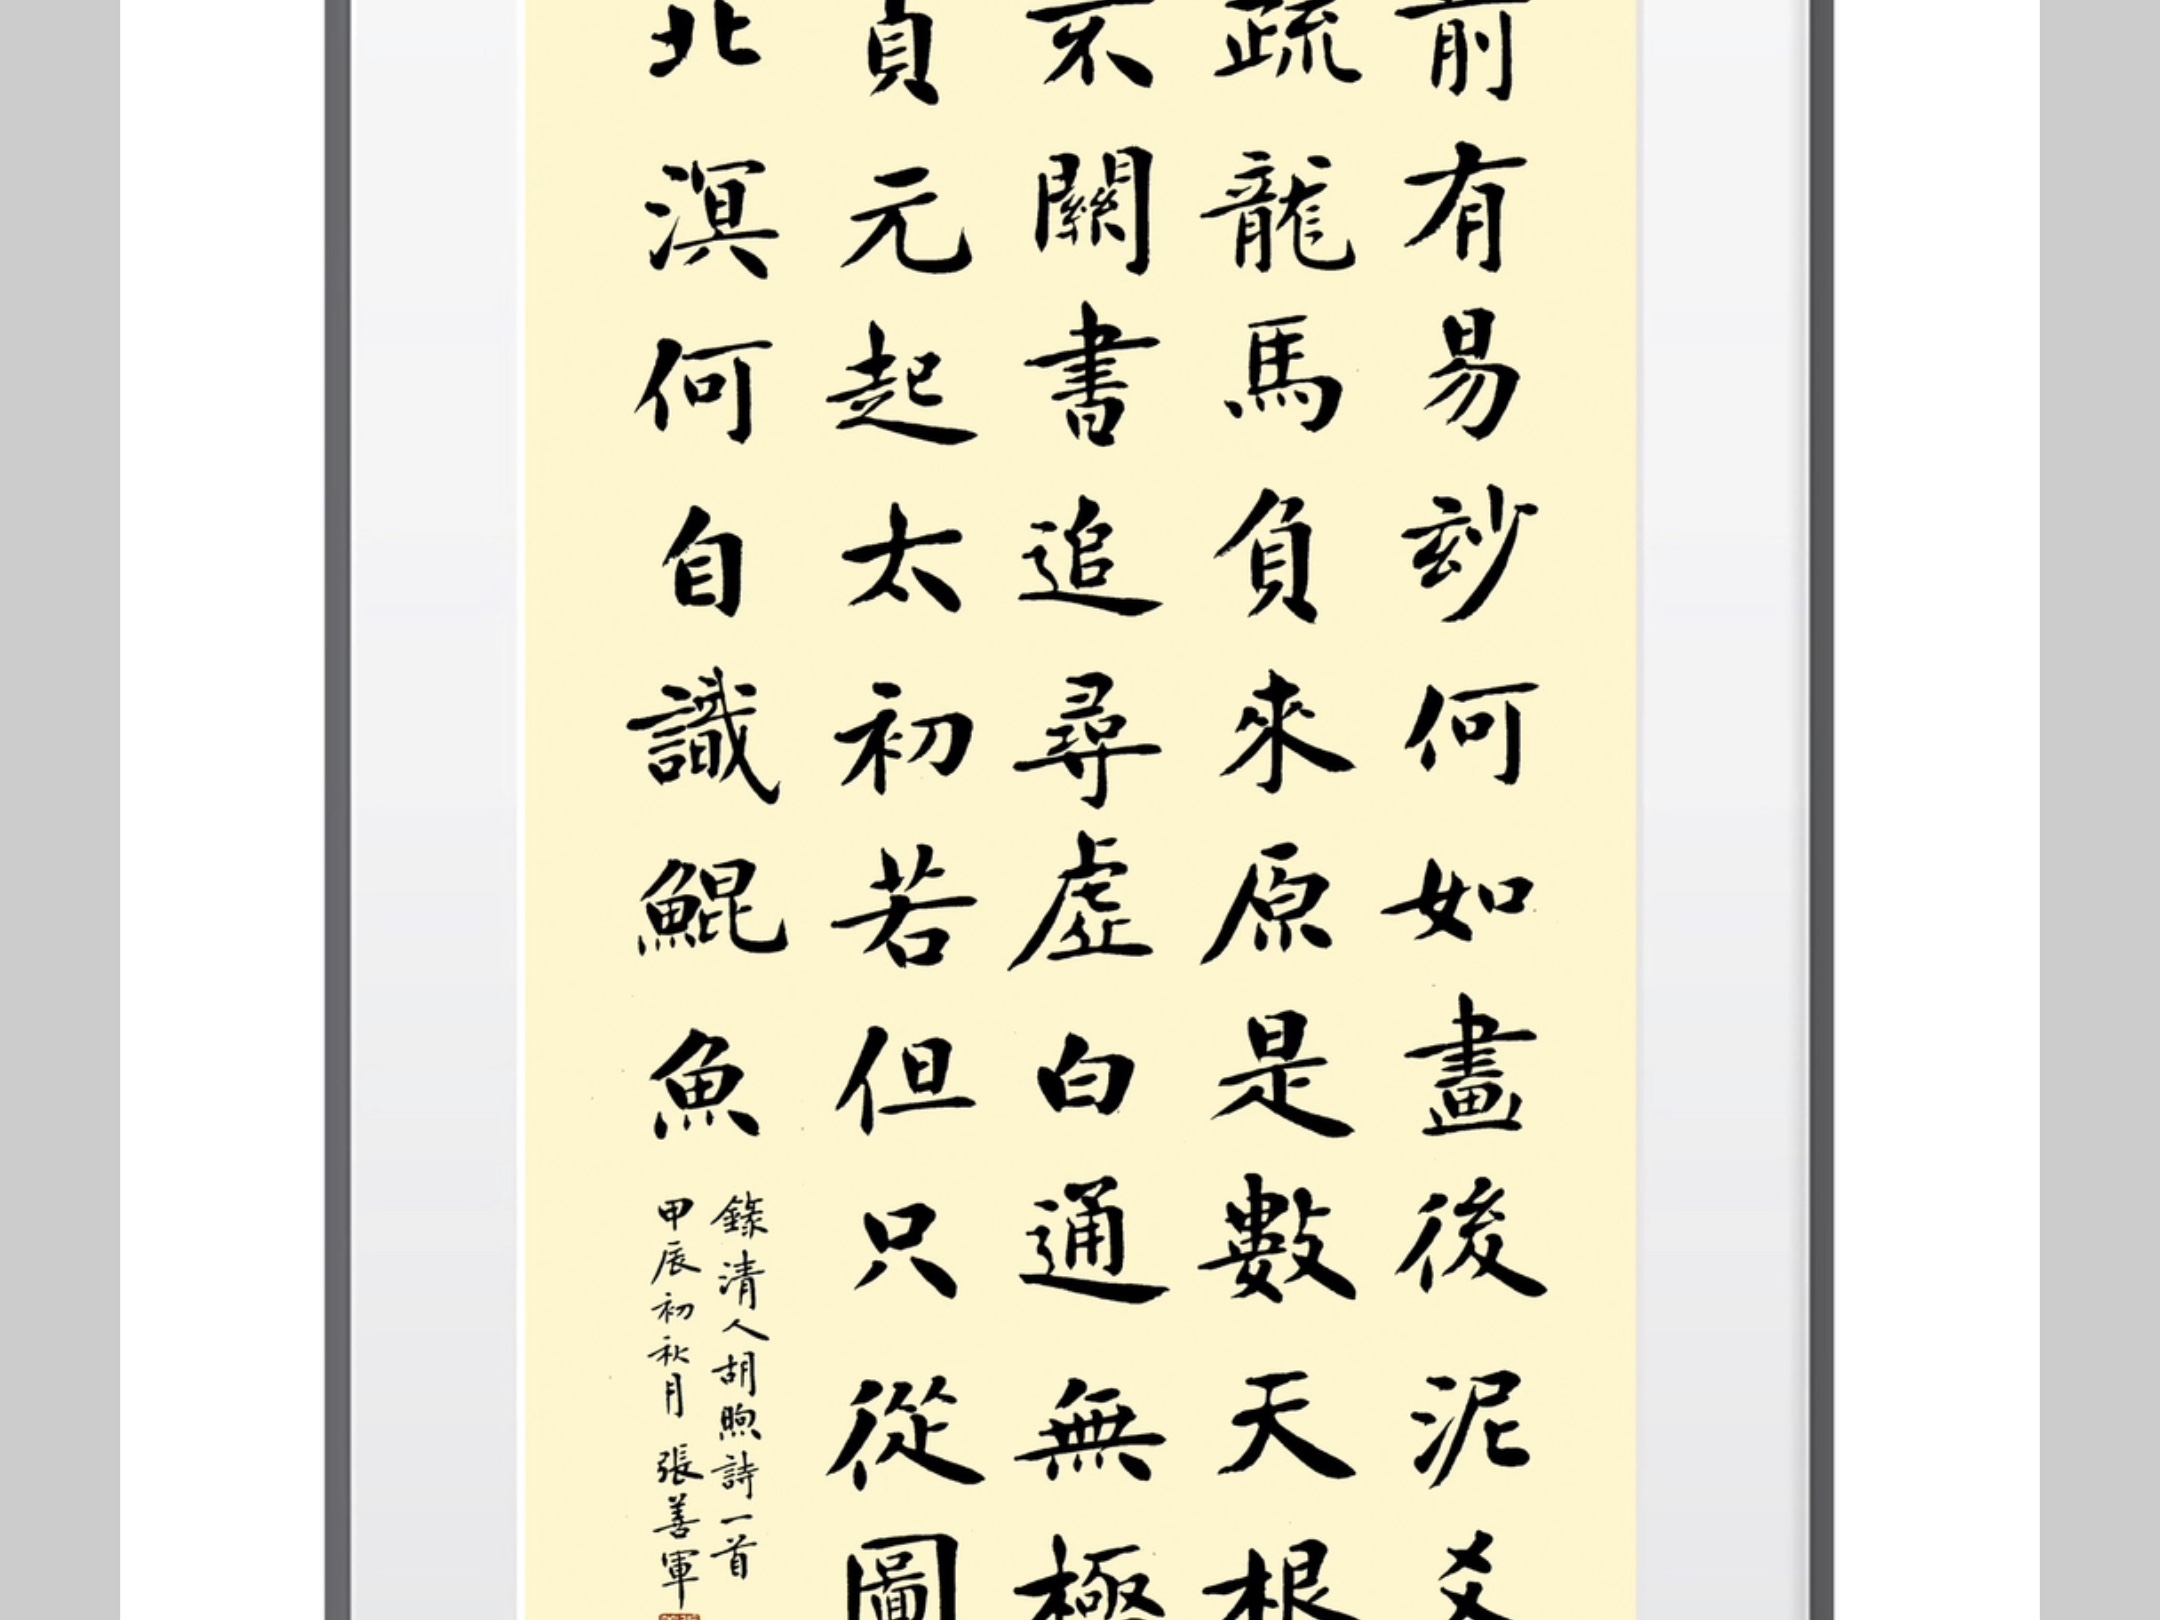 前有易玅何如畫後泥爻
疏龍馬負來原是數天根
不關書追尋虛白通無極
貞元起太初若但只從圖
北溟何自識鯤魚
錄清人胡煦詩一首
甲辰初秋月 張善軍